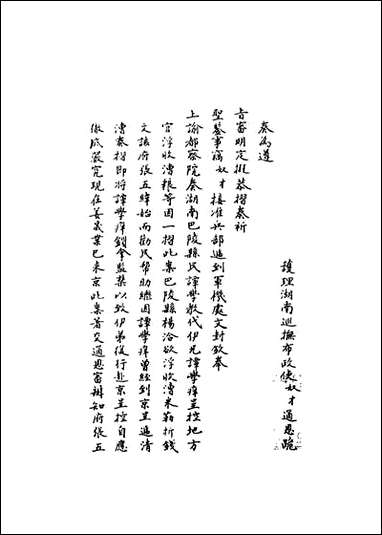 護理湖南巡撫布政使奴才通恩跪
奏為遵
旨審明定擬恭摺奏祈
聖鑒事竊奴才接准兵部遞到軍機處文封欽奉
上諭都察院奏湖南巴陵縣民譚學教代伊兄譚學庠呈控地方
官浮收漕糧等因一摺此案巴陵縣楊洽欲浮收漕米勒折錢
文該府張五緯始而勸民幫助繼因譚學庠曾經到京呈遞清
漕奏摺即將譚學庠鎖拿監禁以致伊弟復行赴京呈控自應
徹底嚴究現在姜晟業已來京此案著交通恩審辦知府張五